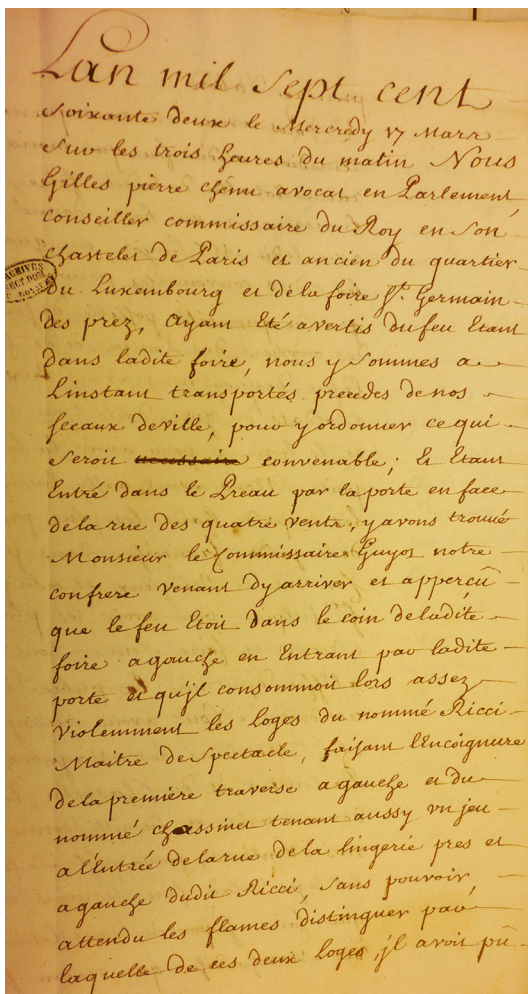 Lan mil Sept cent
Soixante deux le Mercredy 17 Mars
Sur les trois heures du matin Nous
Gilles pierre chenu avocat en Parlement,
conseiller commissaire du Roy en Son
chastelet de Paris et ancien du quartier
du Luxembourg et de la foire St. Germain
des prez, Ayant Eté avertis du feu Etant
dans ladite foire, nous y Sommes a
Linstant transportés precedes de nos
sceaux de ville, pour y ordonner ce qui
Seroit necessaire convenable; Et Etant
Entré dans le Preau par la porte en face
de la rue des quatre vents, y avons trouvé
Monsieur le Commissaire Guyot notre
confrere venant dy arriver et apperçû
que le feu Etoit Dans le coin de ladite
foire a gauche en Entrant par ladite
porte et qu'jl consommoit lors assez
violemment les loges du nommé Ricci
Maitre de Spectacle, faisant l'Encoignure
de la premiere traverse a gauche et du
nommé chassinet tenant aussy vn jeu
a l'Entrée de la rue de la lingerie pres et
a gauche dudit Ricci, sans pouvoir,
attendu les flames distinguer par
laquelle de ces deux loges, jl avoit pû
ARCHIVES
SECT. DOM